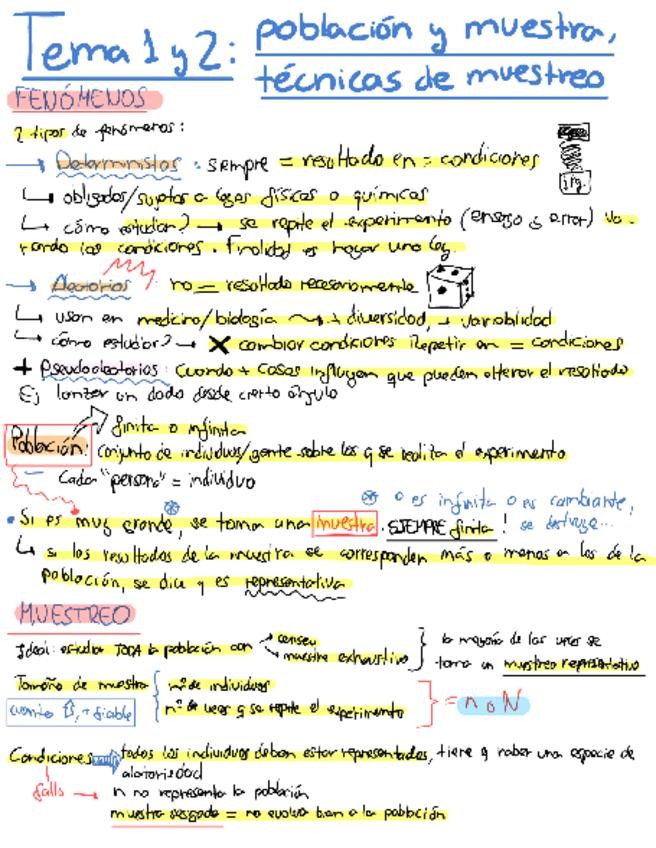 Tema 1 y 2: población y muestra,
técnicas de muestreo
FENÓMENOS
2 tipos de fenómenos:
→ Deterministas: siempre = resultado en = condiciones
↳ obligados/sujetos a leyes físicas o químicas
↳ cómo estudiar? → se repite el experimento (ensayo y error) va-
riando las condiciones. Finalidad es hayar una ley.
→ Aleatorios: no = resultado necesariamente
↳ usan en medicina/biología → + diversidad, + variabilidad
↳ cómo estudiar? → X cambiar condiciones Repetir en = condiciones
+ Pseudoaleatorios: Cuando + cosas influyen que pueden alterar el resultado
Ej lanzar un dado desde cierto ángulo
finita o infinita
Población: conjunto de individuos/gente sobre los q se realiza el experimento
Cada "persona" = individuo
o es infinita o es cambiante,
• Si es muy grande, se toma una muestra. SIEMPRE finita! se destruye...
↳ si los resultados de la muestra se corresponden más o menos en los de la
población, se dice q es representativa
MUESTREO
Ideal: estudiar TODA la población con censo
muestreo exhaustivo
la mayoría de las veces se
toma un muestreo representativo
Tamaño de muestra nº de individuos
nº de veces q se repite el experimento = n o N
cuanto ⇧, + fiable
Condiciones todos los individuos deben estar representados, tiene q haber una especie de
aleatoriedad
fallo → n no representa la población
muestra sesgada = no evalua bien a la población